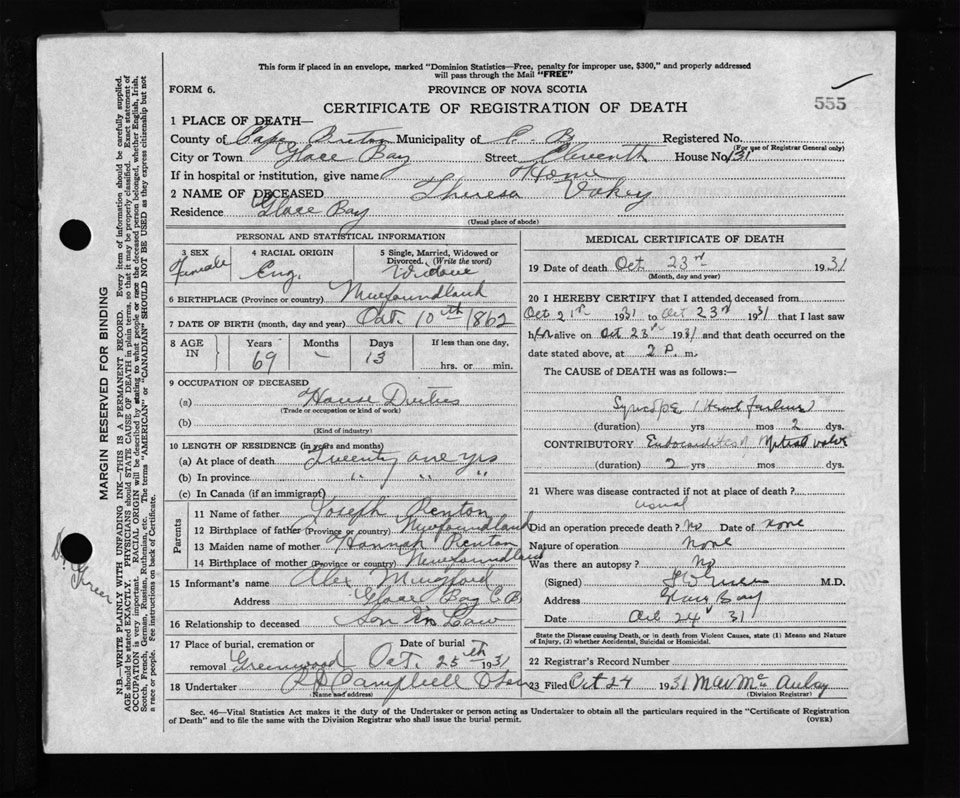 This form if placed in an envelope, marked "Dominion Statistics—Free, penalty for improper use, $300," and properly addressed
will pass through the Mail "FREE"
FORM 6. PROVINCE OF NOVA SCOTIA
CERTIFICATE OF REGISTRATION OF DEATH 555
1 PLACE OF DEATH—
County of Cape Breton Municipality of C. B. Registered No.
(For use of Registrar General only)
City or Town Glace Bay Street Eleventh House No. 131
If in hospital or institution, give name Home
2 NAME OF DECEASED Theresa Vokey
Residence Glace Bay
(Usual place of abode)
PERSONAL AND STATISTICAL INFORMATION
3 SEX Female
4 RACIAL ORIGIN Eng.
5 Single, Married, Widowed or Divorced. (Write the word) Widow
6 BIRTHPLACE (Province or country) Newfoundland
7 DATE OF BIRTH (month, day and year) Oct. 10th 1862
8 AGE IN Years 69 Months – Days 13 If less than one day, hrs. or min.
9 OCCUPATION OF DECEASED
(a) House Duties
(Trade or occupation or kind of work)
(b)
(Kind of industry)
10 LENGTH OF RESIDENCE (in years and months)
(a) At place of death Twenty one yrs
(b) In province " " "
(c) In Canada (if an immigrant)
Parents
11 Name of father Joseph Renton
12 Birthplace of father (Province or country) Newfoundland
13 Maiden name of mother Hannah Renton
14 Birthplace of mother (Province or country) Newfoundland
15 Informant's name Alex
Address Glace Bay C.B.
16 Relationship to deceased Son in Law
17 Place of burial, or removal Greenwood Date of burial Oct. 25th 1931
18 Undertaker Campbell
(Name and address)
MEDICAL CERTIFICATE OF DEATH
19 Date of death Oct 23rd 1931
(Month, day and year)
20 I HEREBY CERTIFY that I attended deceased from
Oct 21st 1931 to Oct 23rd 1931 that I last saw
h er alive on Oct 23rd 1931 and that death occurred on the
date stated above, at 2 P. m.
The CAUSE of DEATH was as follows:—
Syncope (Heart failure)
(duration) yrs mos 2 dys.
CONTRIBUTORY Endocarditis Mitral valve
(duration) 2 yrs mos dys.
21 Where was disease contracted if not at place of death?
usual
Did an operation precede death? No Date of none
Nature of operation none
Was there an autopsy? No
(Signed) M.D.
Address Glace Bay
Date Oct 24 31
State the Disease causing Death, or in death from Violent Causes, state (1) Means and Nature
of Injury, (2) whether Accidental, Suicidal or Homicidal.
22 Registrar's Record Number
23 Filed Oct 24 1931
(Division Registrar)
Sec. 46—Vital Statistics Act makes it the duty of the Undertaker or person acting as Undertaker to obtain all the particulars required in the "Certificate of Registration
of Death" and to file the same with the Division Registrar who shall issue the burial permit. (OVER)
MARGIN RESERVED FOR BINDING
N.B.—WRITE PLAINLY WITH UNFADING INK—THIS IS A PERMANENT RECORD. Every item of information should be carefully supplied.
AGE should be stated EXACTLY. PHYSICIANS should STATE CAUSE OF DEATH in plain terms, so that it may be properly classified. Exact statement of
OCCUPATION is very important. RACIAL ORIGIN will be described by stating to what people or race the deceased person belonged, whether English, Irish,
Scotch, French, German, Russian, Ruthenian, etc. The terms "AMERICAN" or "CANADIAN" SHOULD NOT BE USED as they express citizenship but not
a race or people. See instructions on back of Certificate.
Dr. Green